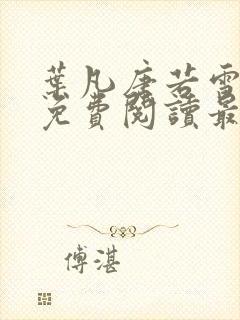 葉凡唐若雪
免費閱讀最
傅湛